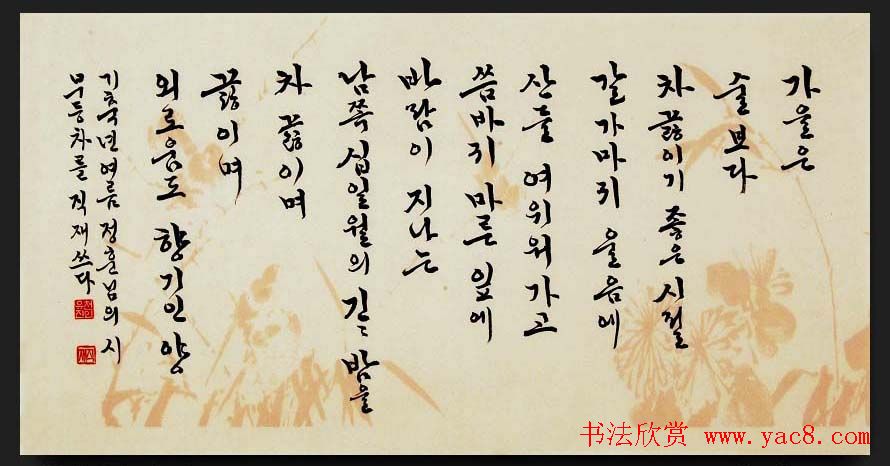 가을은
술 보다
차 끓이기 좋은 시절
갈가마귀 울음에
산들 여위워 가고
씀바귀 마른 잎에
바람이 지나는
남쪽 십일월의 긴 밤을
차 끓이며
끓이며
외로움도 향기인 양
기축년 여름 정훈님의 시
무등차를 직재 쓰다
书法欣赏 www.yac8.com